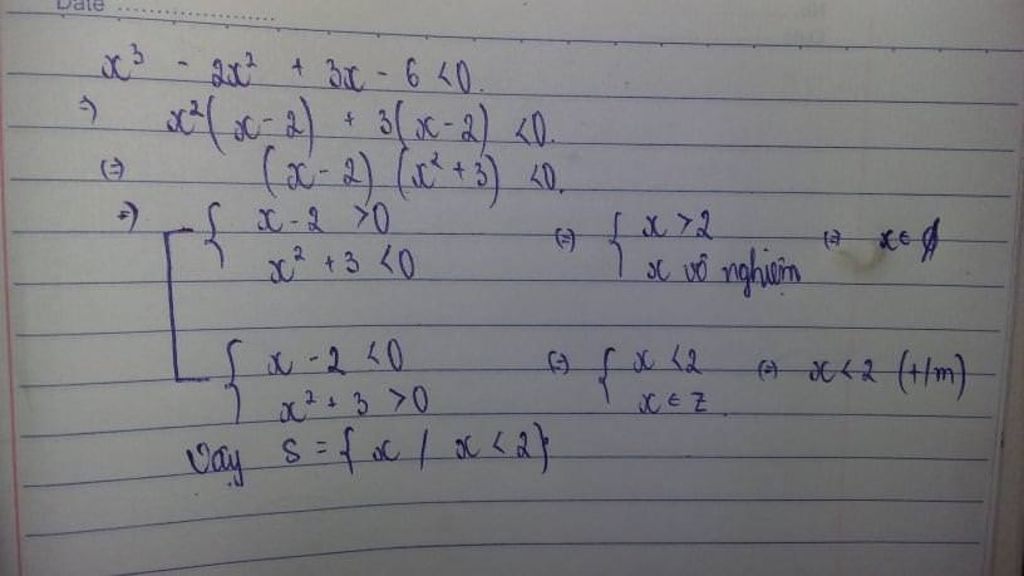 Date
x³ - 2x² + 3x - 6 <0.
=) x²(x-2) + 3(x-2) <0.
(=) (x-2) (x²+3) <0.
=) { x-2 >0 (=) { x >2 (=) x ∈ ∅
x² +3 <0 x vô nghiệm
{ x -2 <0 (=) { x <2 (=) x < 2 (t/m)
x² + 3 >0 x ∈ Z
Vậy S = { x / x < 2}